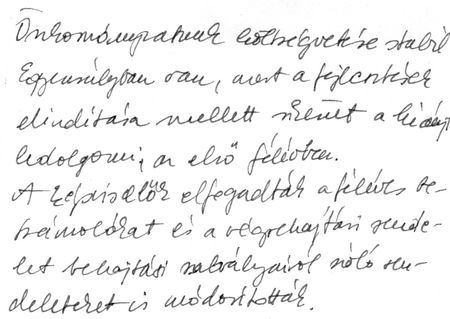 Önkormányzatunk költségvetése stabil
Egyensúlyban van, mert a fejlesztések
elindítása mellett sikerült a hiányt
ledolgozni, az első félévben.
A képviselők elfogadták a féléves be-
számolókat és a végrehajtási rende-
let behajtási szabályairól szóló ren-
deleteket is módosították.